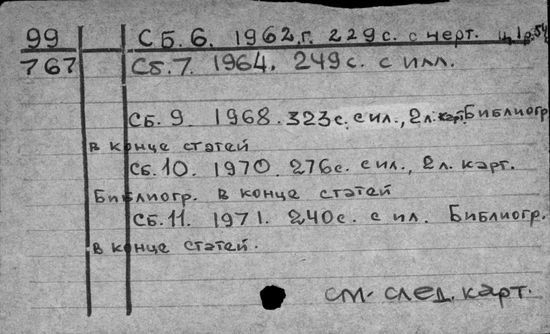 99 Сб. 6. 1962 г. 229 с. с черт. ц. 1р. 54
767 Сб. 7. 1964. 249 с. с илл.
Сб. 9 1968. 323 с. с ил., 2 л. карт. Библиогр
в конце статей
Сб. 10. 1970. 276 с. с ил., 2 л. карт.
Библиогр. в конце статей
Сб. 11. 1971. 240 с. с ил. Библиогр.
в конце статей.
см. след. карт.